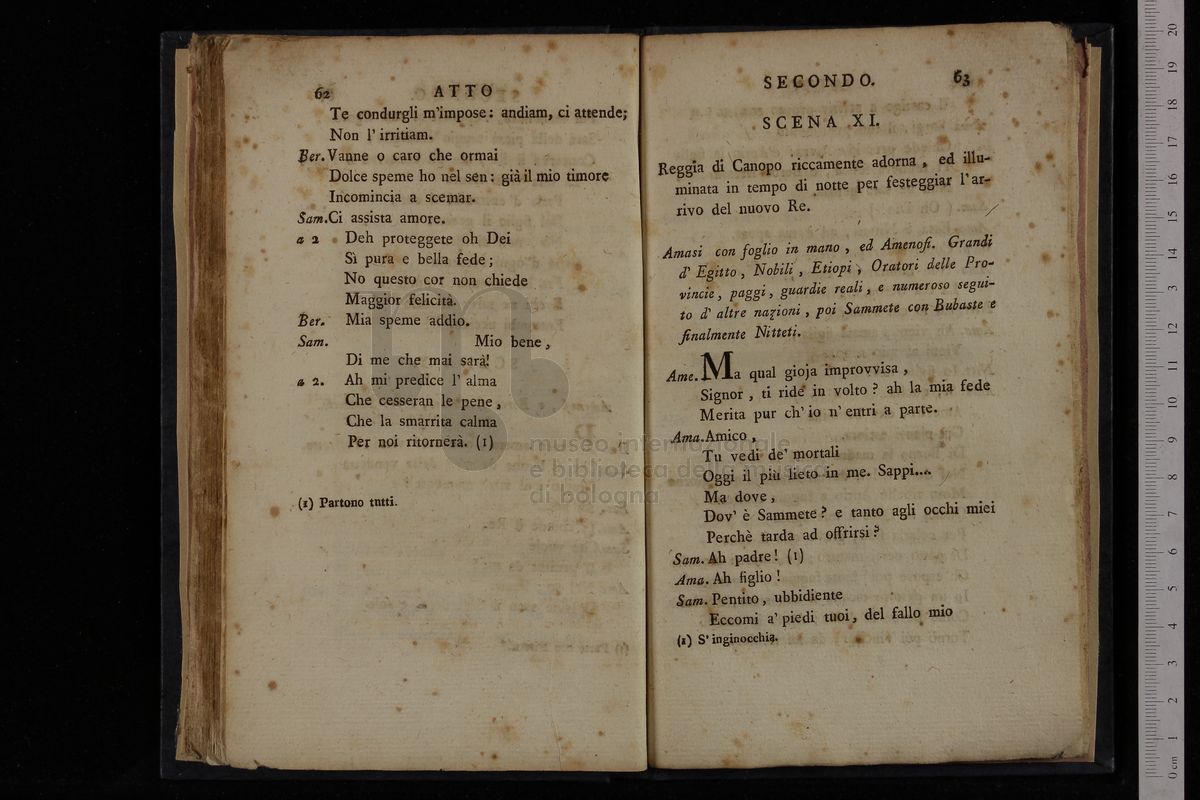 62 ATTO
Te condurgli m'impose: andiam, ci attende;
Non l' irritiam.
Ber. Vanne o caro che ormai
Dolce speme ho nel sen: già il mio timore
Incomincia a scemar.
Sam. Ci assista amore.
a 2 Deh proteggete oh Dei
Sì pura e bella fede;
No questo cor non chiede
Maggior felicità.
Ber. Mia speme addio.
Sam. Mio bene,
Di me che mai sarà!
a 2. Ah mi predice l' alma
Che cesseran le pene,
Che la smarrita calma
Per noi ritornerà. (1)
(1) Partono tutti.
SECONDO. 63
SCENA XI.
Reggia di Canopo riccamente adorna, ed illu-
minata in tempo di notte per festeggiar l'ar-
rivo del nuovo Re.
Amasi con foglio in mano, ed Amenofi. Grandi
d' Egitto, Nobili, Etiopi, Oratori delle Pro-
vincie, paggi, guardie reali, e numeroso segui-
to d' altre nazioni, poi Sammete con Bubaste e
finalmente Nitteti.
Ame. Ma qual gioja improvvisa,
Signor, ti ride in volto? ah la mia fede
Merita pur ch' io n' entri a parte.
Ama. Amico,
Tu vedi de' mortali
Oggi il più lieto in me. Sappi....
Ma dove,
Dov' è Sammete? e tanto agli occhi miei
Perchè tarda ad offrirsi?
Sam. Ah padre! (1)
Ama. Ah figlio!
Sam. Pentito, ubbidiente
Eccomi a' piedi tuoi, del fallo mio
(1) S' inginocchia.
museo internazionale
e biblioteca della musica
di bologna